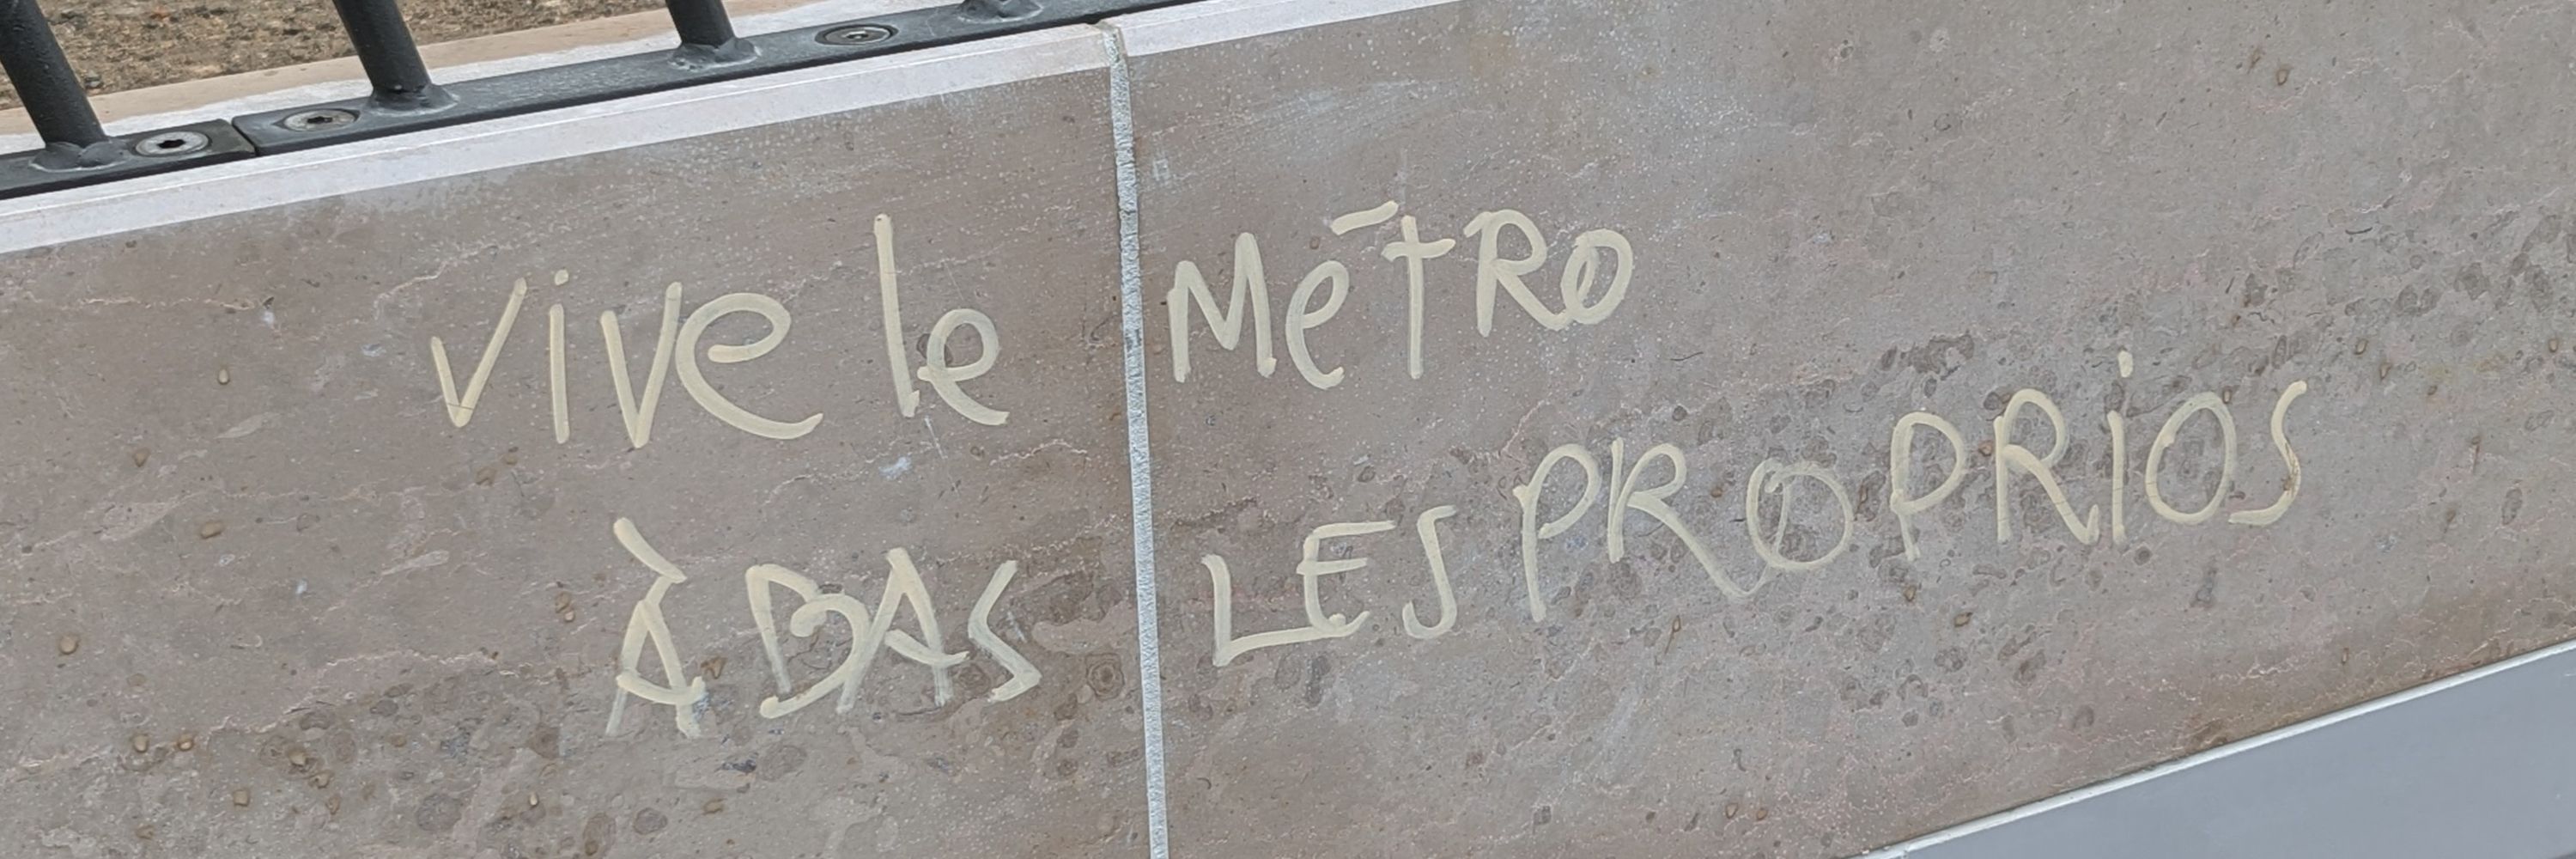 vive le MéTRO
À BAS LES PROPRiOS